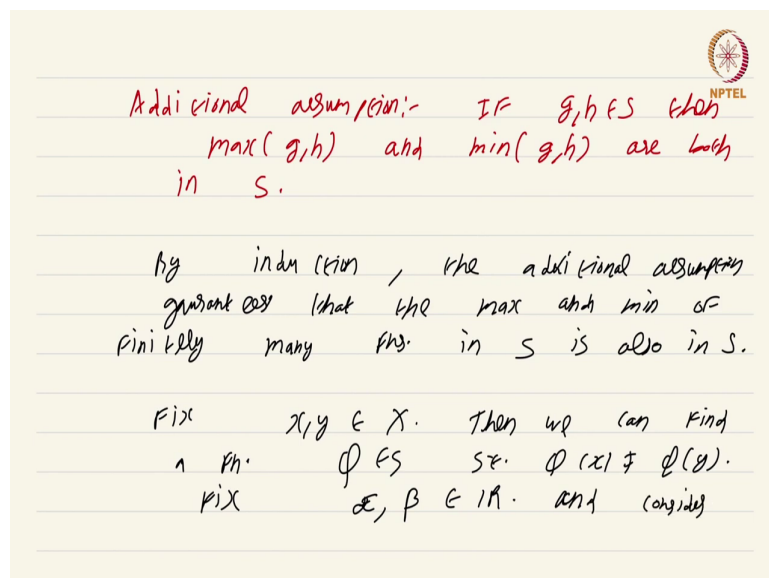 NPTEL
Additional assumption:- IF g,h ∈ S then
max(g,h) and min(g,h) are both
in S.
By induction, the additional assumption
guarantees that the max and min of
Finitely many Fns. in S is also in S.
Fix x,y ∈ X. Then we can Find
a Fn. φ ∈ S st. φ(x) ≠ φ(y).
Fix α, β ∈ IR. and consider